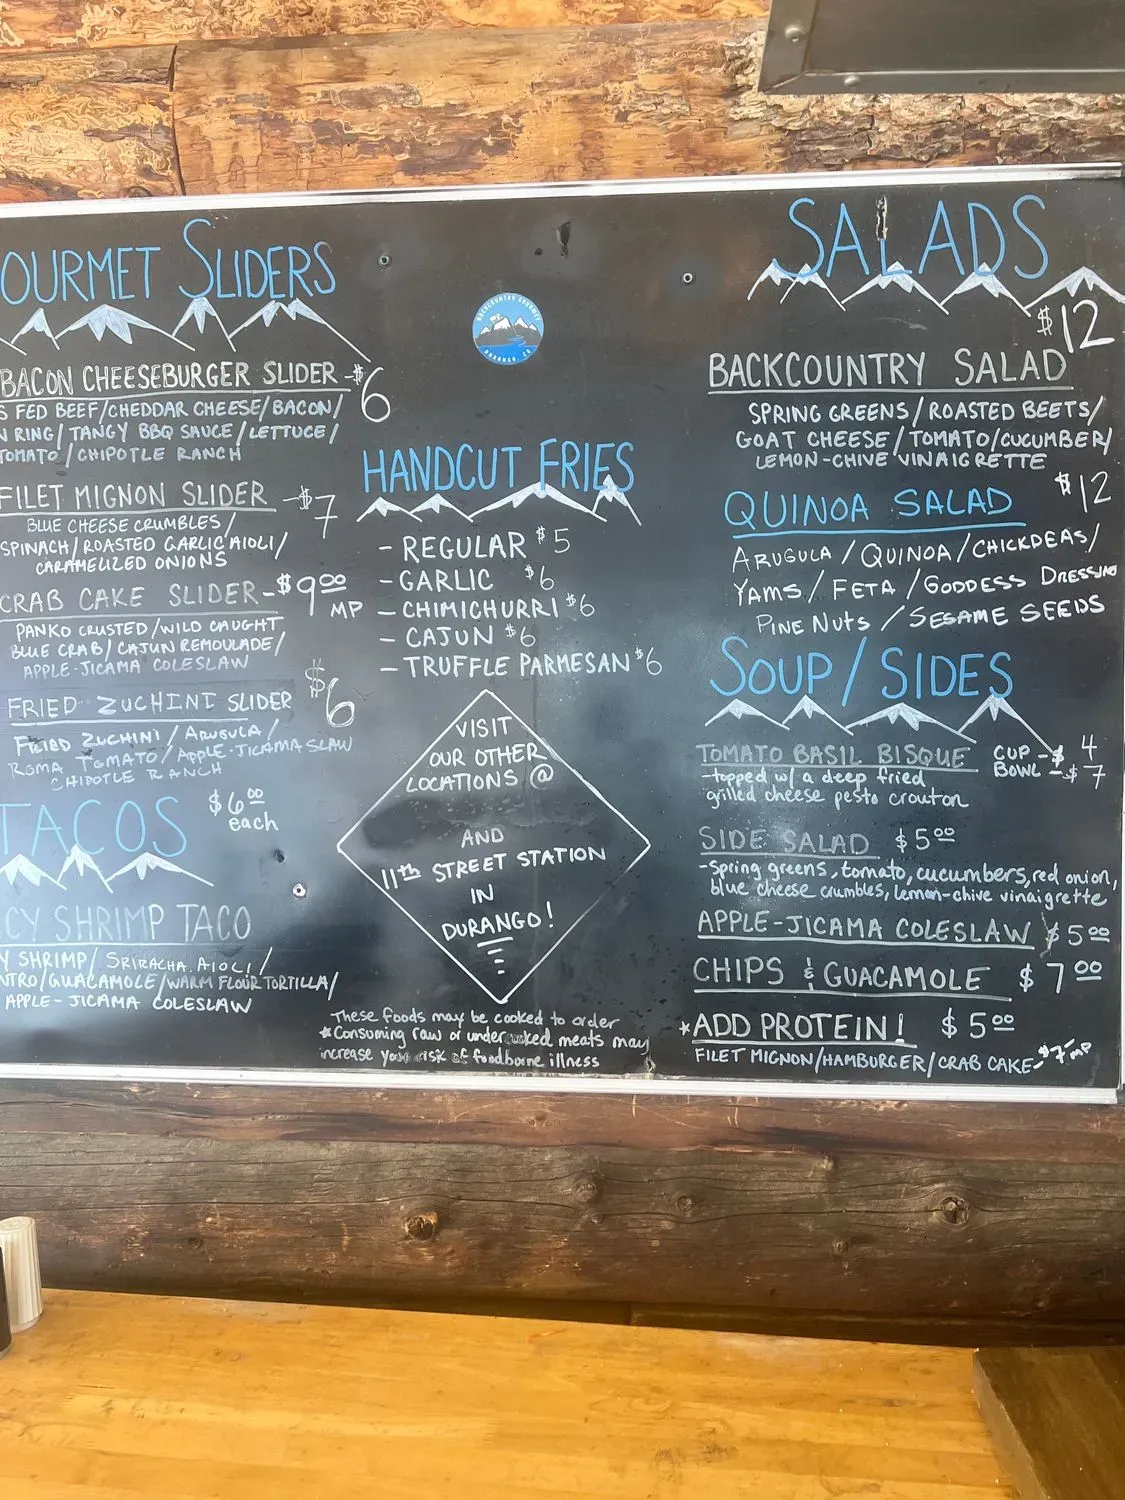 OURMET SLIDERS
BACON CHEESEBURGER SLIDER - $6
S FED BEEF/CHEDDAR CHEESE/BACON/
N RING/TANGY BBQ SAUCE/LETTUCE/
TOMATO/CHIPOTLE RANCH
FILET MIGNON SLIDER - $7
BLUE CHEESE CRUMBLES/
SPINACH/ROASTED GARLIC AIOLI/
CARAMELIZED ONIONS
CRAB CAKE SLIDER - $9.00
MP
PANKO CRUSTED/WILD CAUGHT
BLUE CRAB/CAJUN REMOULADE/
APPLE-JICAMA COLESLAW
FRIED ZUCHINI SLIDER $6
FRIED ZUCHINI/ARUGULA/
ROMA TOMATO/APPLE-JICAMA SLAW
CHIPOTLE RANCH
TACOS $6.00
each
CY SHRIMP TACO
Y SHRIMP/SRIRACHA AIOLI/
NTRO/GUACAMOLE/WARM FLOUR TORTILLA/
APPLE-JICAMA COLESLAW
BACKCOUNTRY GOURMET
DURANGO, CO
HANDCUT FRIES
- REGULAR $5
- GARLIC $6
- CHIMICHURRI $6
- CAJUN $6
- TRUFFLE PARMESAN $6
VISIT
OUR OTHER
LOCATIONS @
AND
11th STREET STATION
IN
DURANGO!
These foods may be cooked to order
*Consuming raw or undercooked meats may
increase your risk of foodborne illness
SALADS
$12
BACKCOUNTRY SALAD
SPRING GREENS/ROASTED BEETS/
GOAT CHEESE/TOMATO/CUCUMBER/
LEMON-CHIVE VINAIGRETTE
QUINOA SALAD $12
ARUGULA/QUINOA/CHICKDEAS/
YAMS/FETA/GODDESS DRESSING
PINE NUTS/SESAME SEEDS
SOUP/SIDES
TOMATO BASIL BISQUE CUP - $4
BOWL - $7
-topped w/ a deep fried
grilled cheese pesto crouton
SIDE SALAD $5.00
-Spring greens, tomato, cucumbers, red onion,
blue cheese crumbles, lemon-chive vinaigrette
APPLE-JICAMA COLESLAW $5.00
CHIPS & GUACAMOLE $7.00
*ADD PROTEIN! $5.00
FILET MIGNON/HAMBURGER/CRAB CAKE-$7 MP